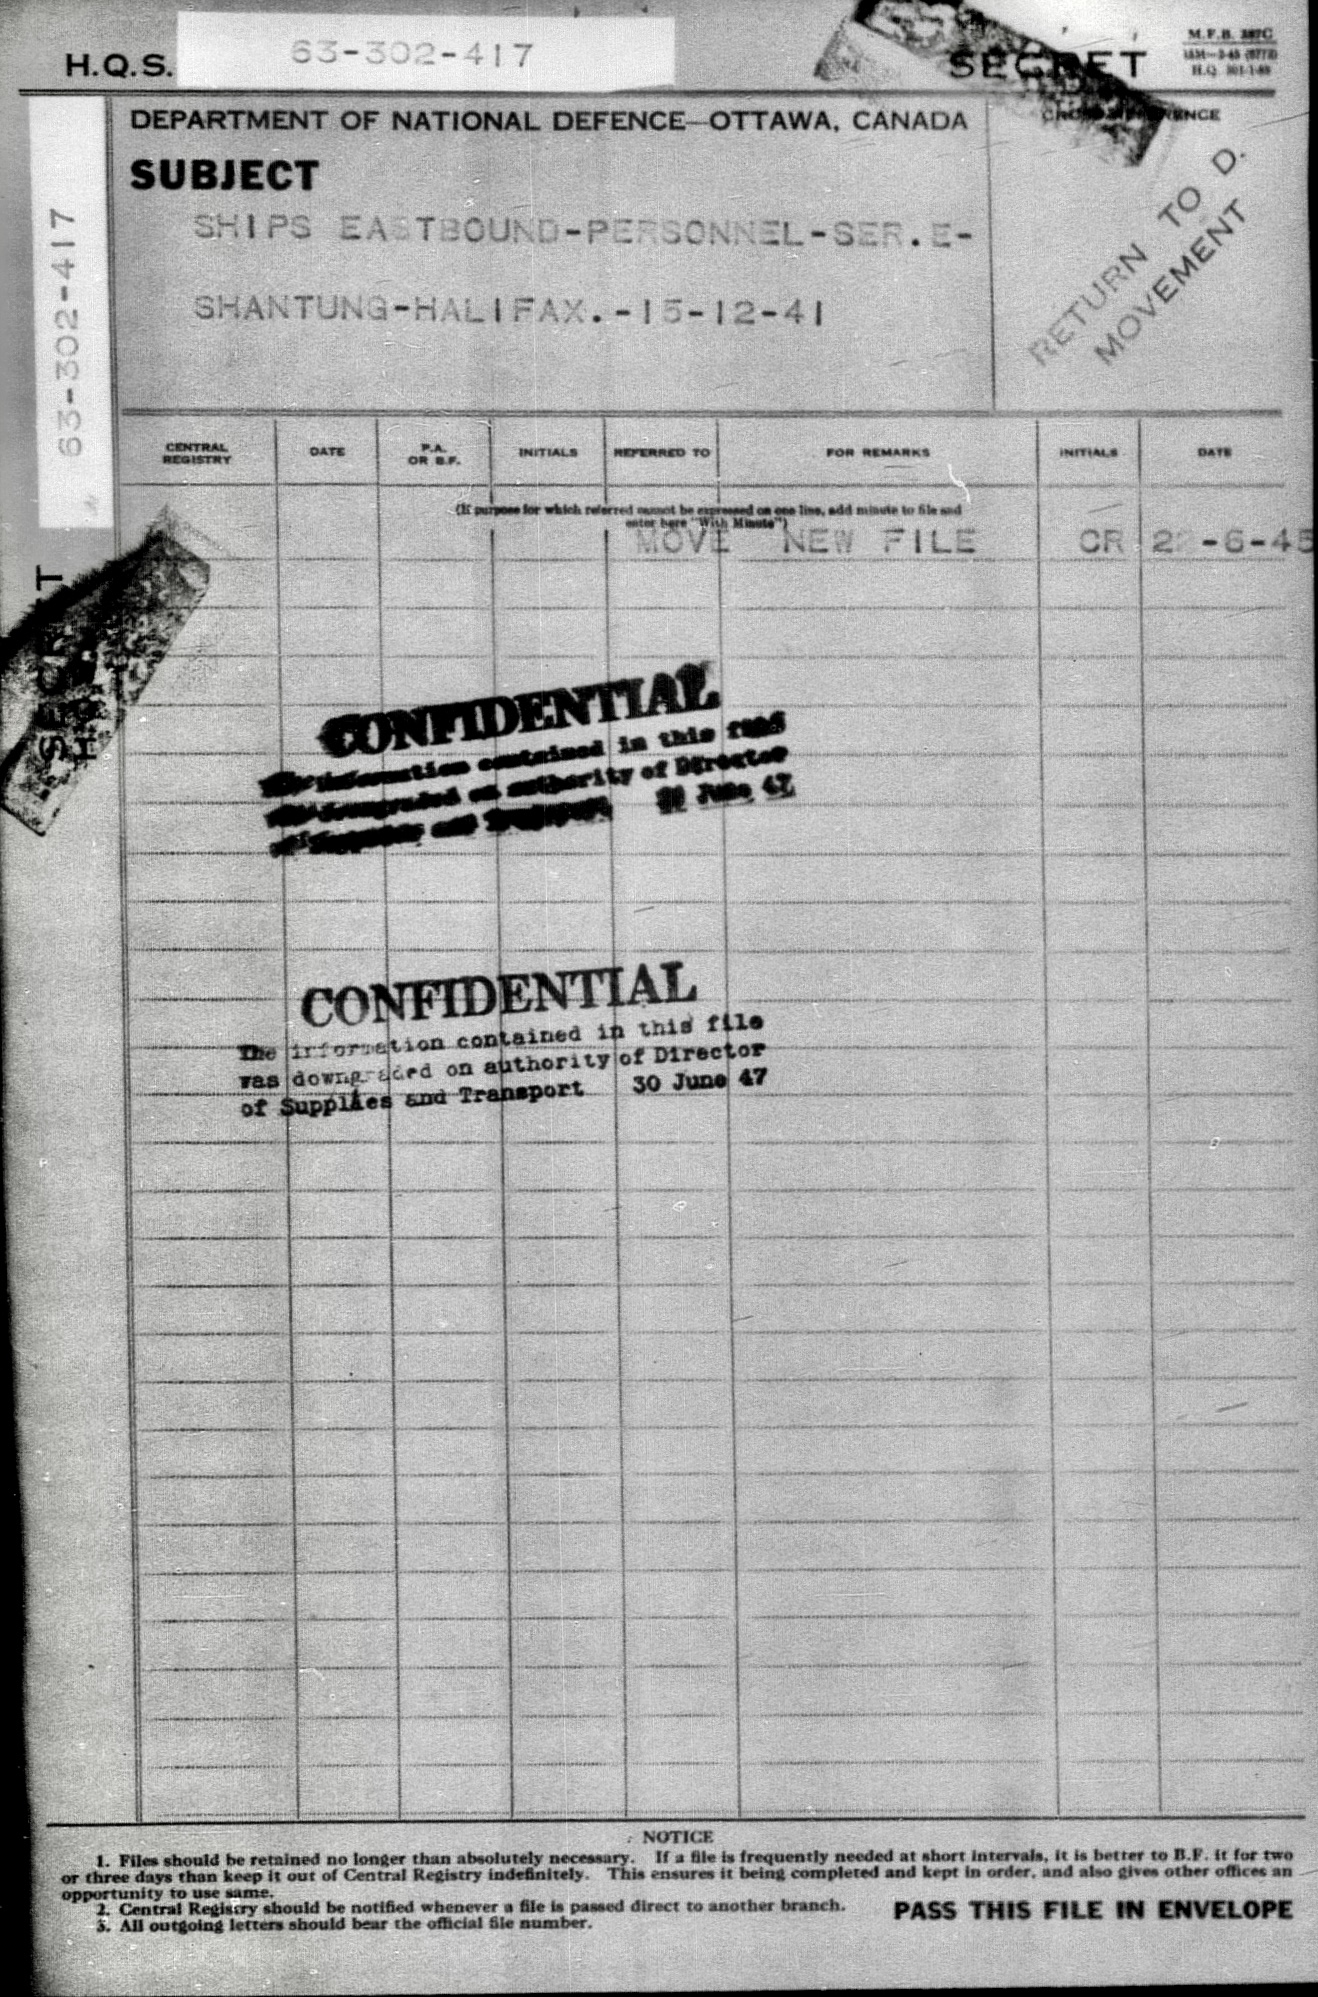 H.Q.S. 63-302-417
SECRET
M.F.B.
DEPARTMENT OF NATIONAL DEFENCE—OTTAWA, CANADA
SUBJECT
SHIPS EASTBOUND-PERSONNEL-SER.E-
SHANTUNG-HALIFAX.-15-12-41
RETURN TO D.
MOVEMENT
63-302-417
SECRET
CENTRAL REGISTRY DATE P.A. OR B.F. INITIALS REFERRED TO FOR REMARKS INITIALS DATE
(If purpose for which referred cannot be expressed on one line, add minute to file and
enter here "With Minute")
MOVE NEW FILE CR 22-6-45
CONFIDENTIAL
information contained in this
downgraded on authority of Director
of Supplies and Transport June 47
CONFIDENTIAL
The information contained in this file
was downgraded on authority of Director
of Supplies and Transport 30 June 47
NOTICE
1. Files should be retained no longer than absolutely necessary. If a file is frequently needed at short intervals, it is better to B.F. it for two
or three days than keep it out of Central Registry indefinitely. This ensures it being completed and kept in order, and also gives other offices an
opportunity to use same.
2. Central Registry should be notified whenever a file is passed direct to another branch.
3. All outgoing letters should bear the official file number.
PASS THIS FILE IN ENVELOPE